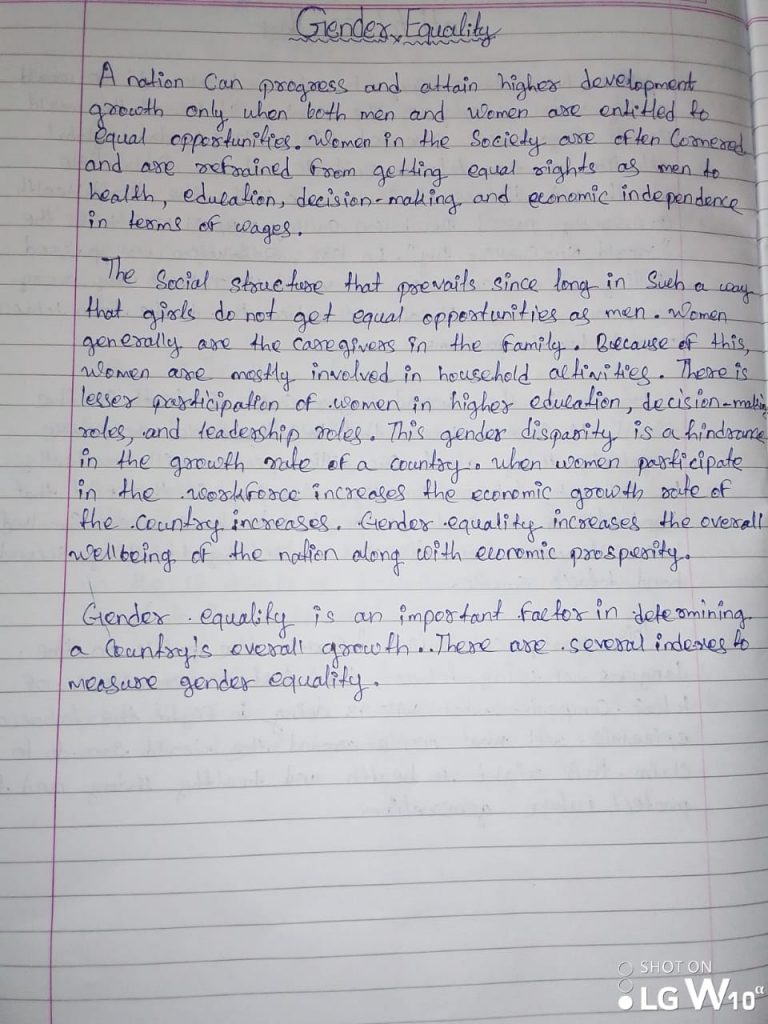 Gender Equality
A nation Can progress and attain higher development
growth only when both men and women are entitled to
equal opportunities. Women in the Society are often Cornered
and are refrained from getting equal rights as men to
health, education, decision-making and economic independence
in terms of wages.
The Social structure that prevails since long in Such a way
that girls do not get equal opportunities as men. Women
generally are the caregivers in the family. Because of this,
women are mostly involved in household activities. There is
lesser participation of women in higher education, decision-making
roles, and leadership roles. This gender disparity is a hindrance
in the growth rate of a country. when women participate
in the workforce increases the economic growth rate of
the country increases. Gender equality increases the overall
wellbeing of the nation along with economic prosperity.
Gender equality is an important factor in determining
a Country's overall growth. There are several indexes to
measure gender equality.
SHOT ON
LG W10α